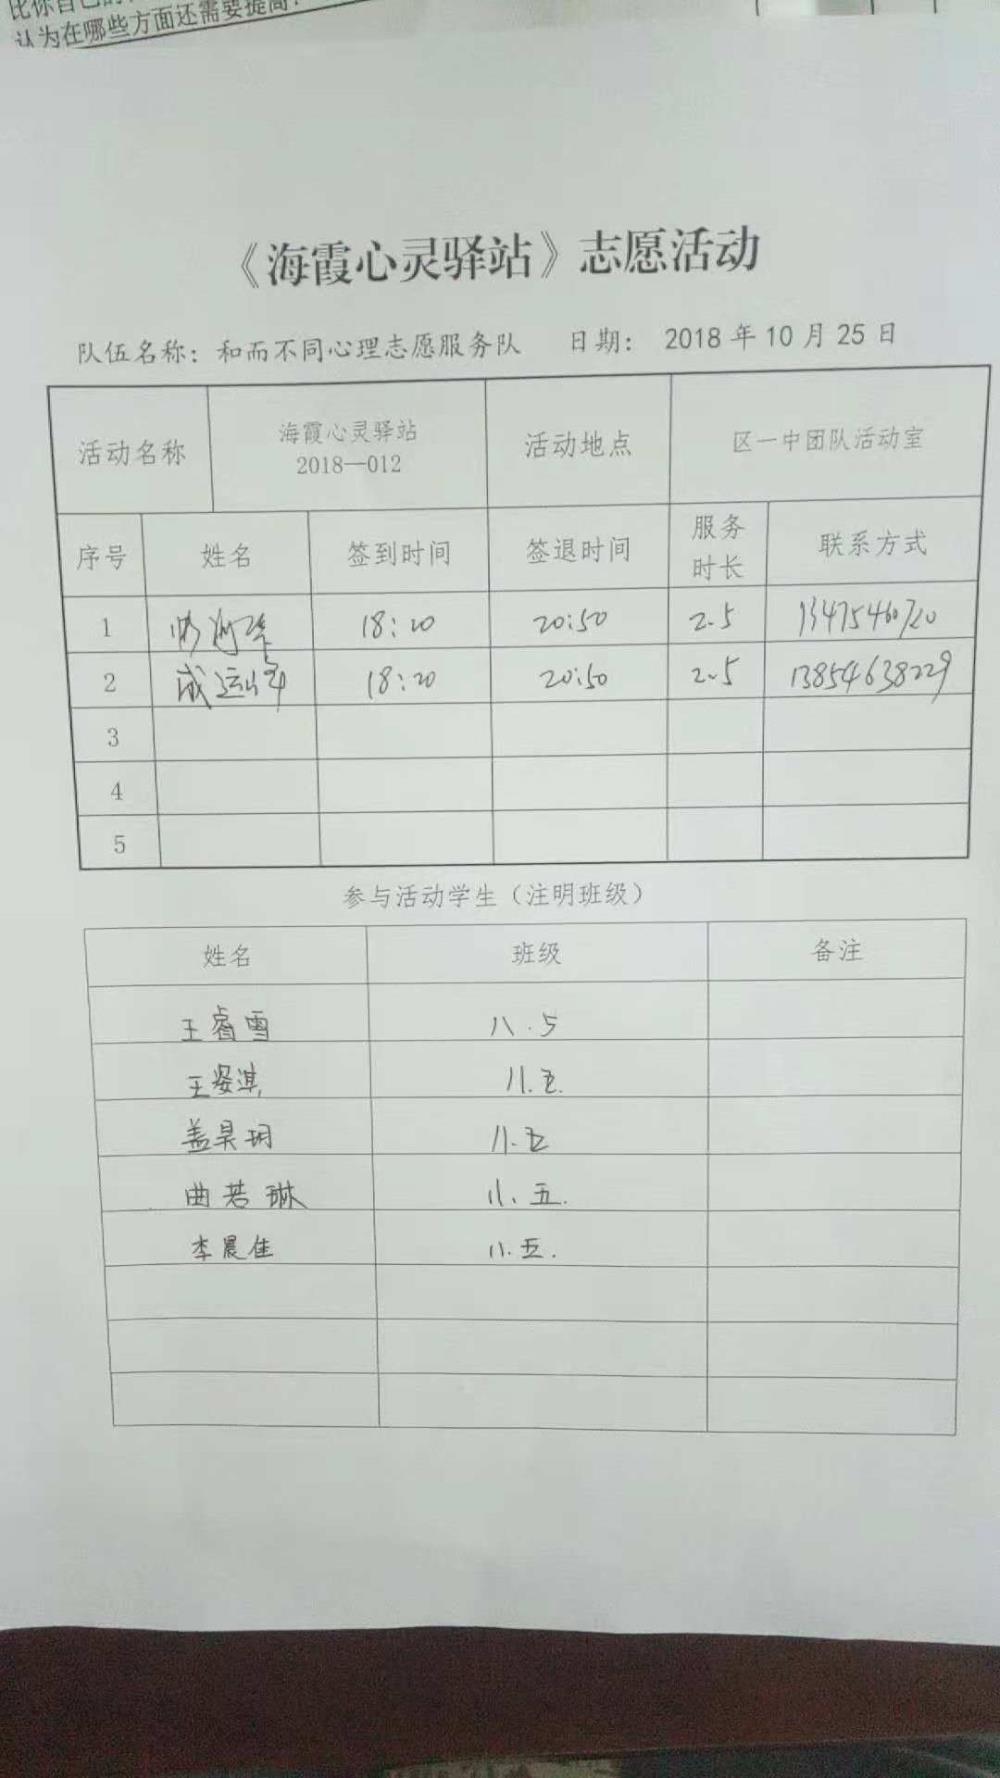 认为在哪些方面还需要提高？
《海霞心灵驿站》志愿活动
队伍名称：和而不同心理志愿服务队 日期： 2018 年 10 月 25 日
活动名称 海霞心灵驿站 2018—012 活动地点 区一中团队活动室
序号 姓名 签到时间 签退时间 服务时长 联系方式
1 18:20 20:50 2.5 13475460720
2 18:20 20:50 2.5 13854638229
3
4
5
参与活动学生（注明班级）
姓名 班级 备注
王睿雪 八.5
王姿淇 八.五.
盖昊玥 八.五
曲若琳 八、五.
李晨佳 八.五.